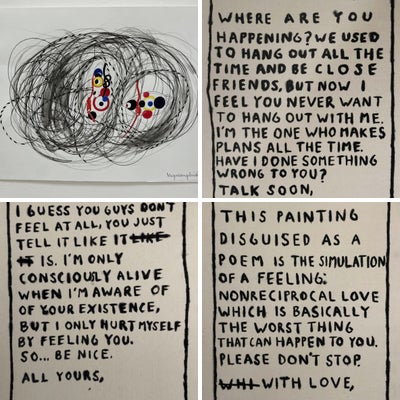 WHERE ARE YOU
HAPPENING? WE USED
TO HANG OUT ALL THE
TIME AND BE CLOSE
FRIENDS, BUT NOW I
FEEL YOU NEVER WANT
TO HANG OUT WITH ME.
I'M THE ONE WHO MAKES
PLANS ALL THE TIME.
HAVE I DONE SOMETHING
WRONG TO YOU?
TALK SOON,
I GUESS YOU GUYS DON'T
FEEL AT ALL, YOU JUST
TELL IT LIKE IT LIKE
IT IS. I'M ONLY
CONSCIOUSLY ALIVE
WHEN I'M AWARE OF
OF YOUR EXISTENCE,
BUT I ONLY HURT MYSELF
BY FEELING YOU.
SO... BE NICE.
ALL YOURS,
THIS PAINTING
DISGUISED AS A
POEM IS THE SIMULATION
OF A FEELING:
NONRECIPROCAL LOVE
WHICH IS BASICALLY
THE WORST THING
THAT CAN HAPPEN TO YOU.
PLEASE DON'T STOP.
WITH LOVE,